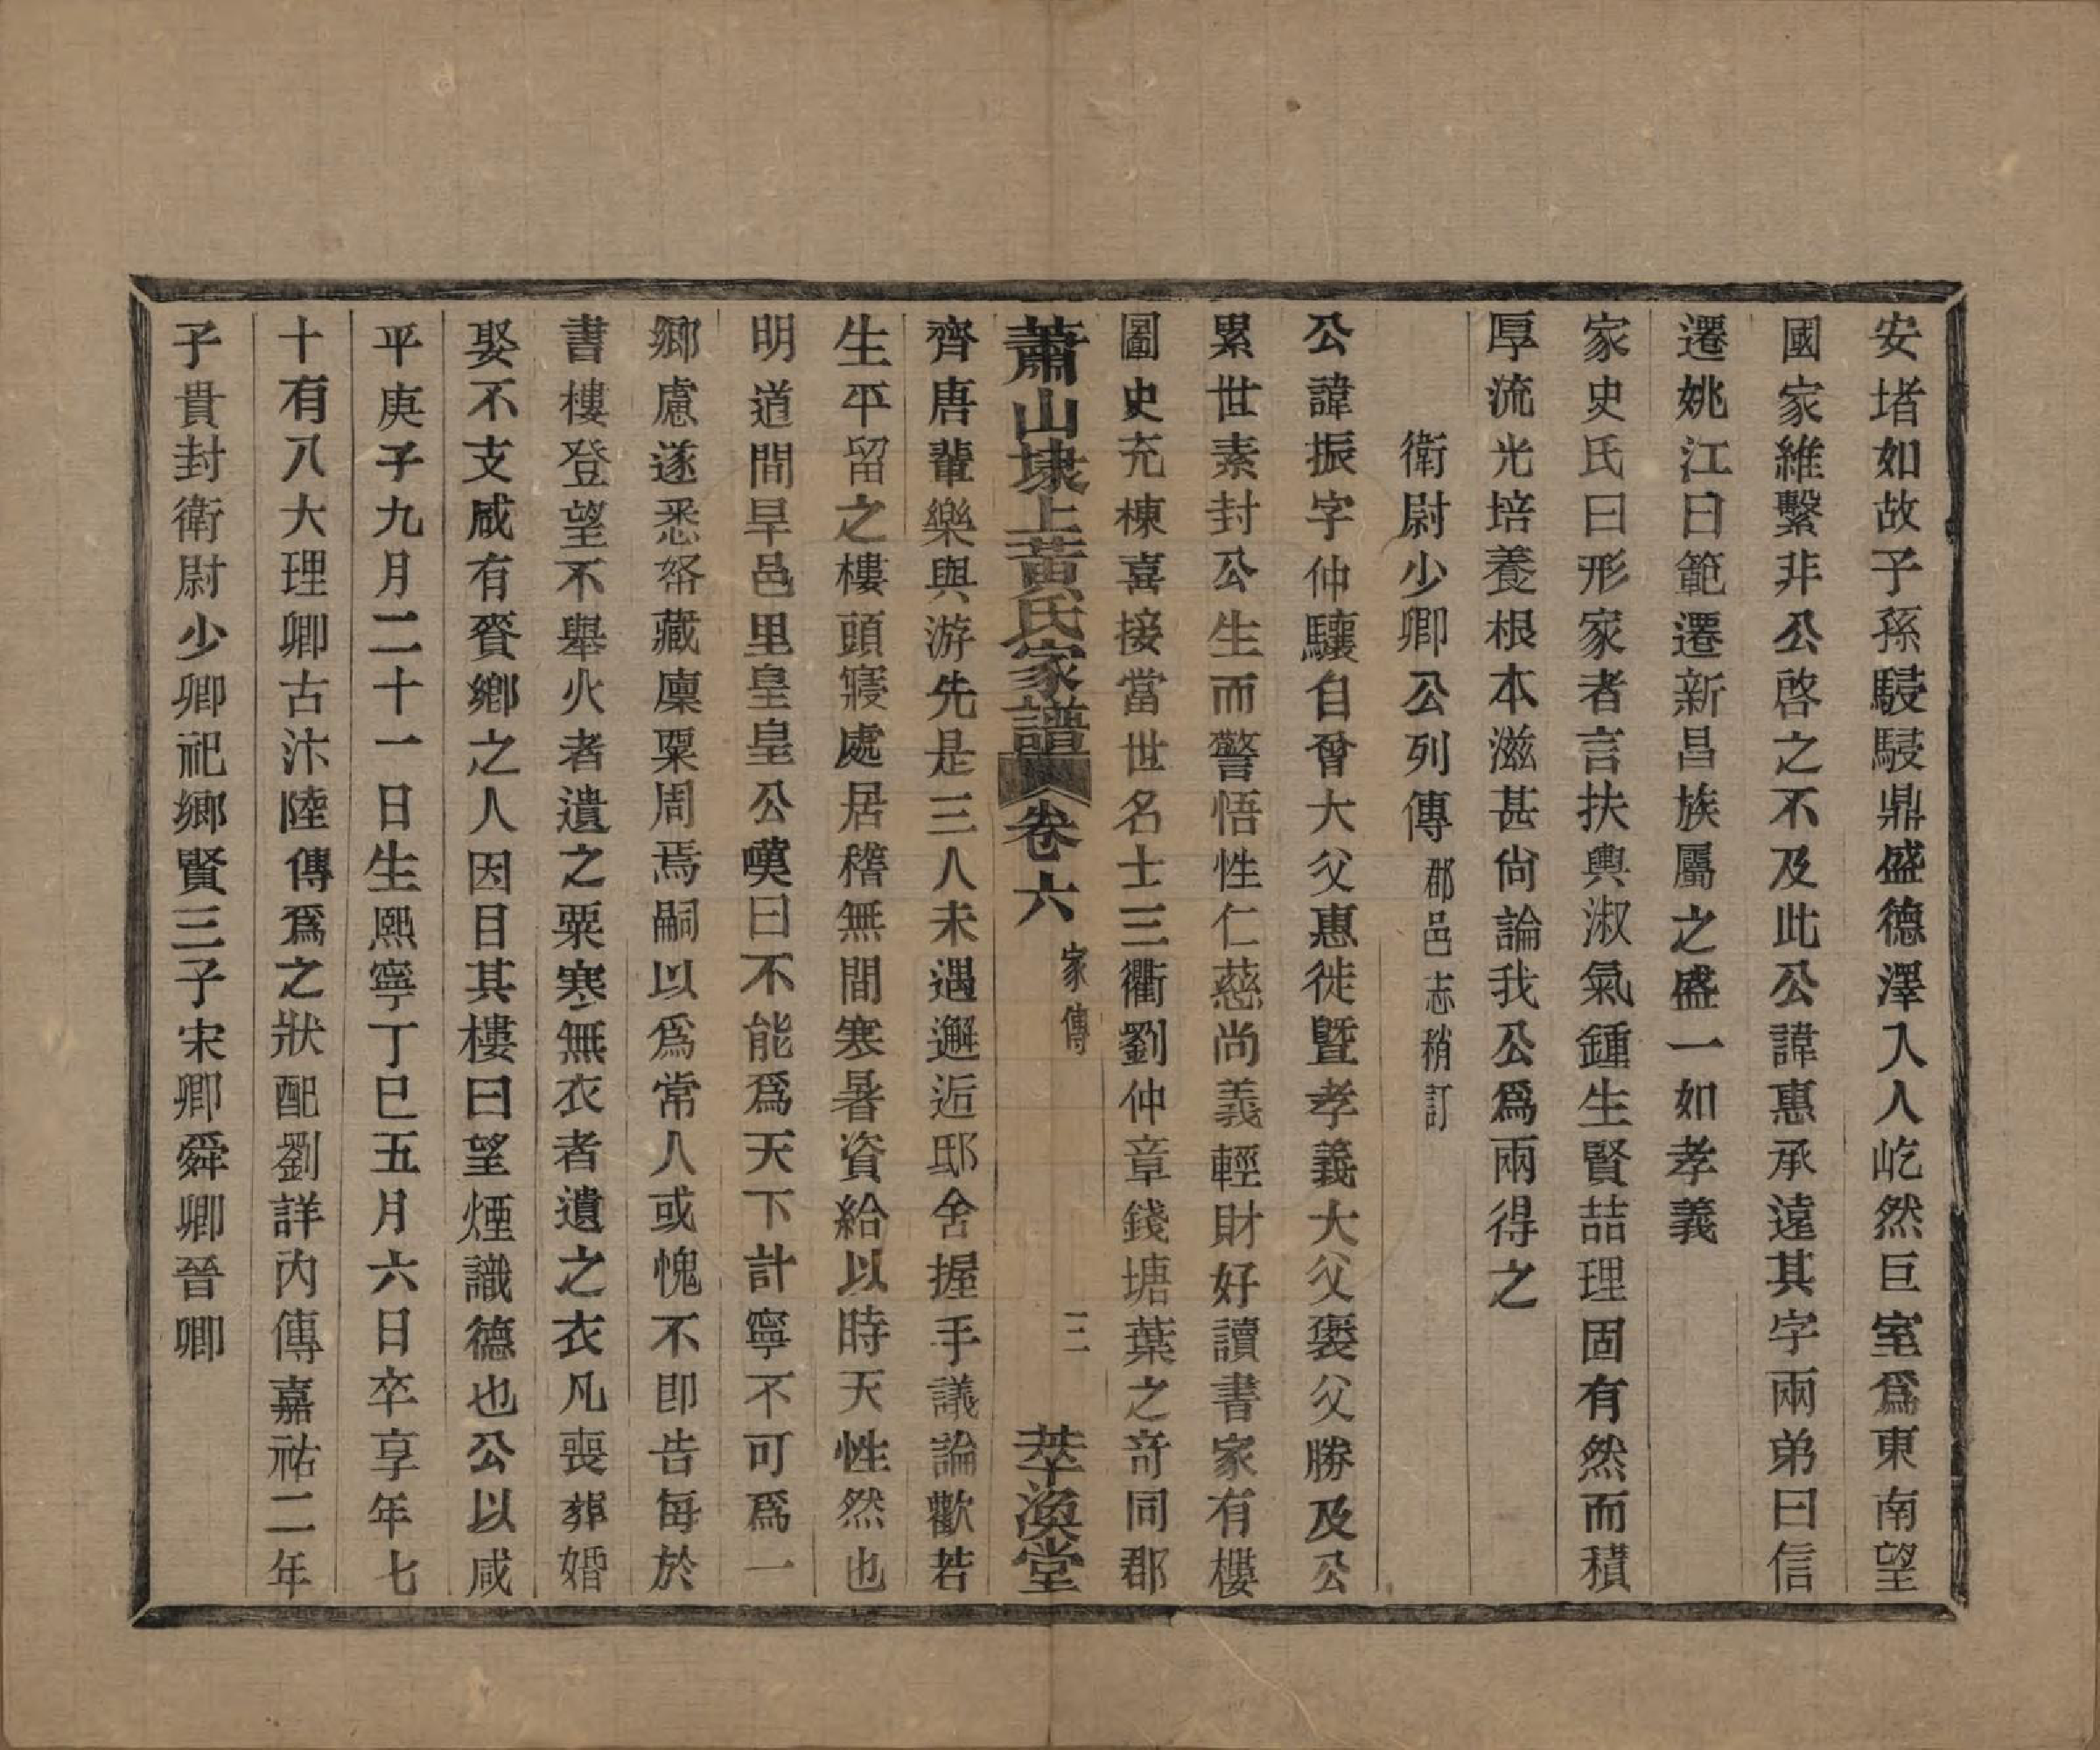 安堵如故子孫駸駸鼎盛德澤入人屹然巨室爲東南望
國家維繫非公啓之不及此公諱惠承遠其字兩弟曰信
遷姚江曰範遷新昌族屬之盛一如孝義
家史氏曰形家者言扶輿淑氣鍾生賢喆理固有然而積
厚流光培養根本滋甚尙論我公爲兩得之
衛尉少卿公列傳郡邑志稍訂
公諱振字仲驤自曾大父惠徙曁孝義大父褒父勝及公
累世素封公生而警悟性仁慈尚義輕財好讀書家有樓
圖史充棟喜接當世名士三衢劉仲章錢塘葉之奇同郡
蕭山埭上黃氏家譜 卷六 家傳 三 萃渙堂
齊唐輩樂與游先是三人未遇邂逅邸舍握手議論歡若
生平留之樓頭寢處居稽無間寒暑資給以時天性然也
明道間旱邑里皇皇公嘆曰不能爲天下計寧不可爲一
鄉慮遂悉帑藏廩粟周焉嗣以爲常人或愧不卽告每於
書樓登望不舉火者遺之粟寒無衣者遺之衣凡喪葬婚
娶不支咸有賚鄉之人因目其樓曰望煙識德也公以咸
平庚子九月二十一日生熙寧丁巳五月六日卒享年七
十有八大理卿古汴陸傳爲之狀配劉詳內傳嘉祐二年
子貴封衛尉少卿祀鄉賢三子宋卿舜卿晉卿